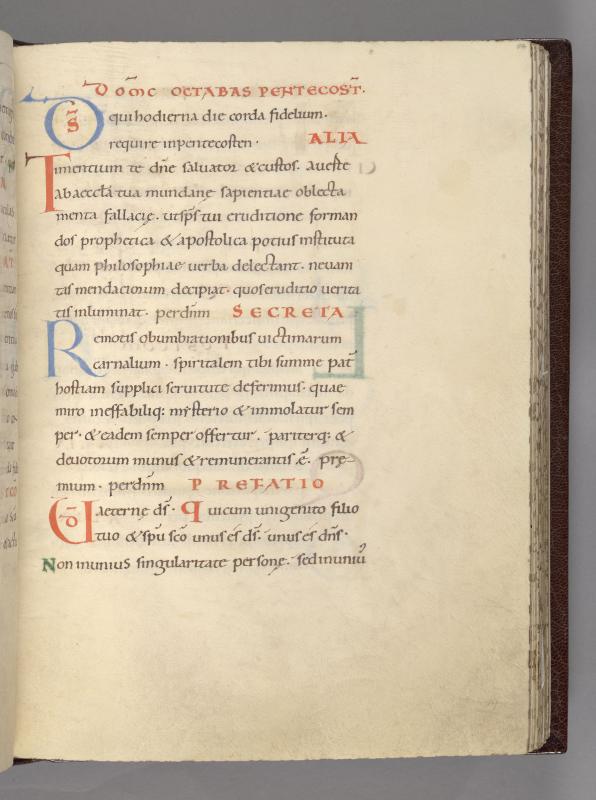 DOM̄C OCTABAS PENTECOST̄.
D̄S qui hodierna die corda fidelium.
require in pentecosten. ALIA
Timentium te dn̄e saluator & custos. auerte
ab aeccl̄a tua mundane sapientiae oblecta
menta fallacie. ut sp̄s tui eruditione forman
dos prophetica & apostolica potius instituta
quam philosophiae uerba delectant. ne uani
tas mendaciorum decipiat. quos eruditio uerita
tis inluminat. per dn̄m SECRETA
Remotis obumbrationibus uictimarum
carnalium. spiritalem tibi summe pat̄
hostiam supplici seruitute deferimus. quae
miro ineffabiliq: mysterio & immolatur sem
per. & eadem semper offertur. pariterq: &
deuotorum munus & remunerantis ē. pre
mium. per dn̄m PREFATIO
UD̄ aeterne ds̄. Qui cum unigenito filio
tuo & sp̄u sc̄o unus és ds̄. unus és dn̄s.
Non in unius singularitate persone. sed in uniu